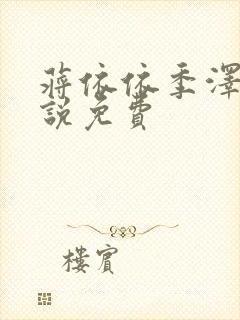 蔣依依季澤
說免費
樓賓